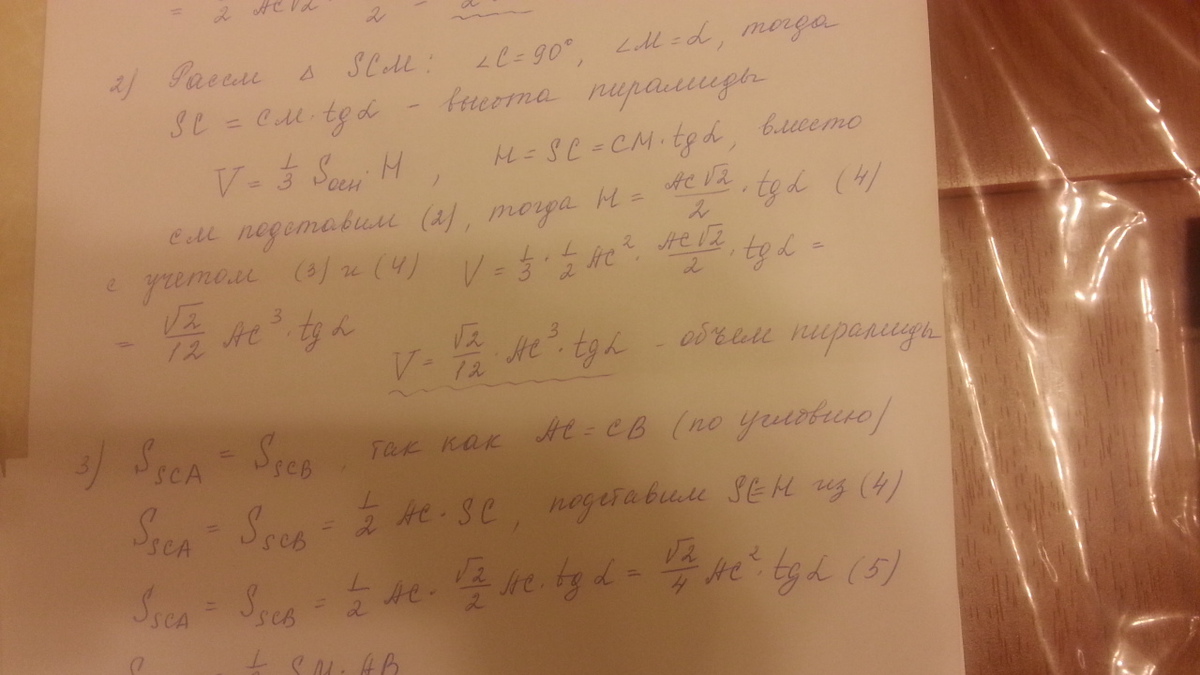 = 1/2 AC√2 · /2 = 2
2) Рассм △ SCM: ∠C=90°, ∠M=α, тогда
SC = CM·tgα - высота пирамиды
V = 1/3 Sосн H, H=SC=CM·tgα, вместо
см подставим (2), тогда H = AC√2/2 · tgα (4)
с учетом (3) и (4) V = 1/3 · 1/2 AC² · AC√2/2 · tgα =
= √2/12 AC³ · tgα
V = √2/12 · AC³ · tgα - объем пирамиды
3) S_SCA = S_SCB, так как AC=CB (по угловию)
S_SCA = S_SCB = 1/2 AC · SC, подставим SC=H из (4)
S_SCA = S_SCB = 1/2 AC · √2/2 AC · tgα = √2/4 AC² · tgα (5)
SM · AB